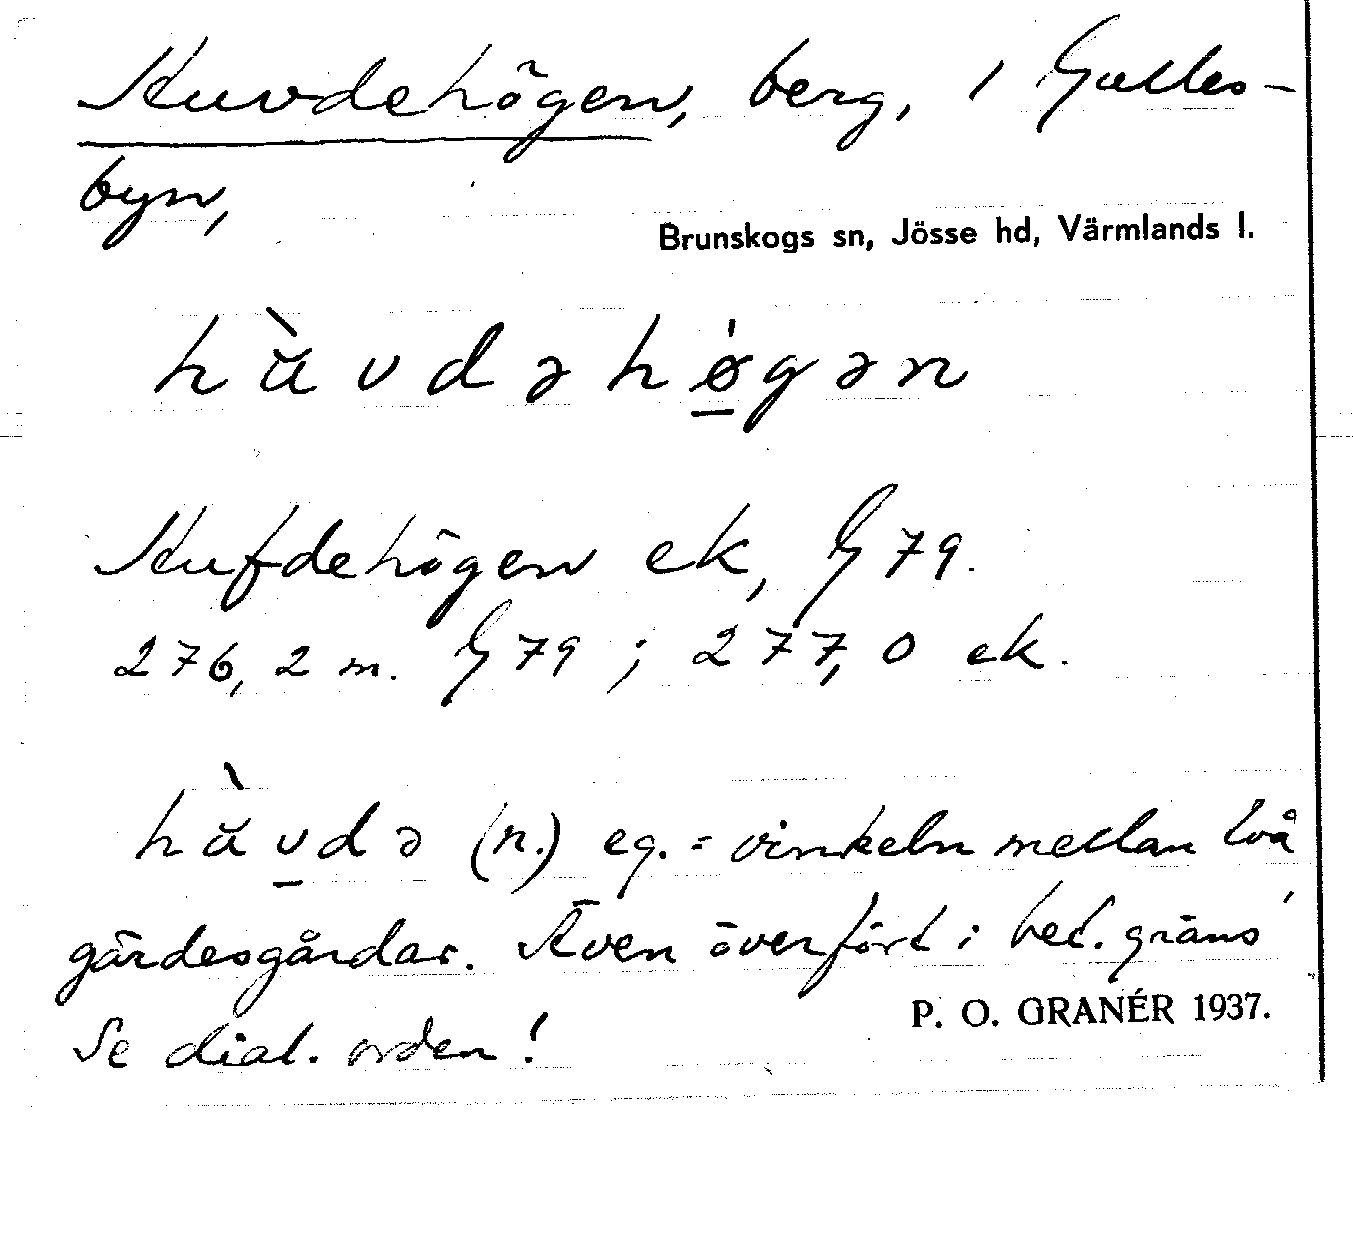 Huvdehögen, berg, i Gulles-
byn,
Brunskogs sn, Jösse hd, Värmlands l.
hùvdəhøgən
Hufdehögen ek, G 79.
276,2 m. G 79 ; 277,0 ek.
hùvdə (n.) eg. = vinkeln mellan två
gärdesgårdar. Även överfört i bet. gräns'
Se dial. orden!
P. O. GRANÉR 1937.